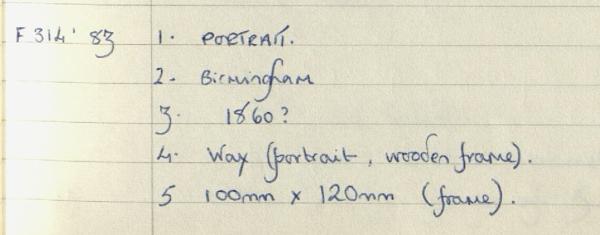 F 314' 83 1. PORTRAIT.
2. Birmingham
3. 1860?
4. Wax (portrait, wooden frame).
5 100mm x 120mm (frame).